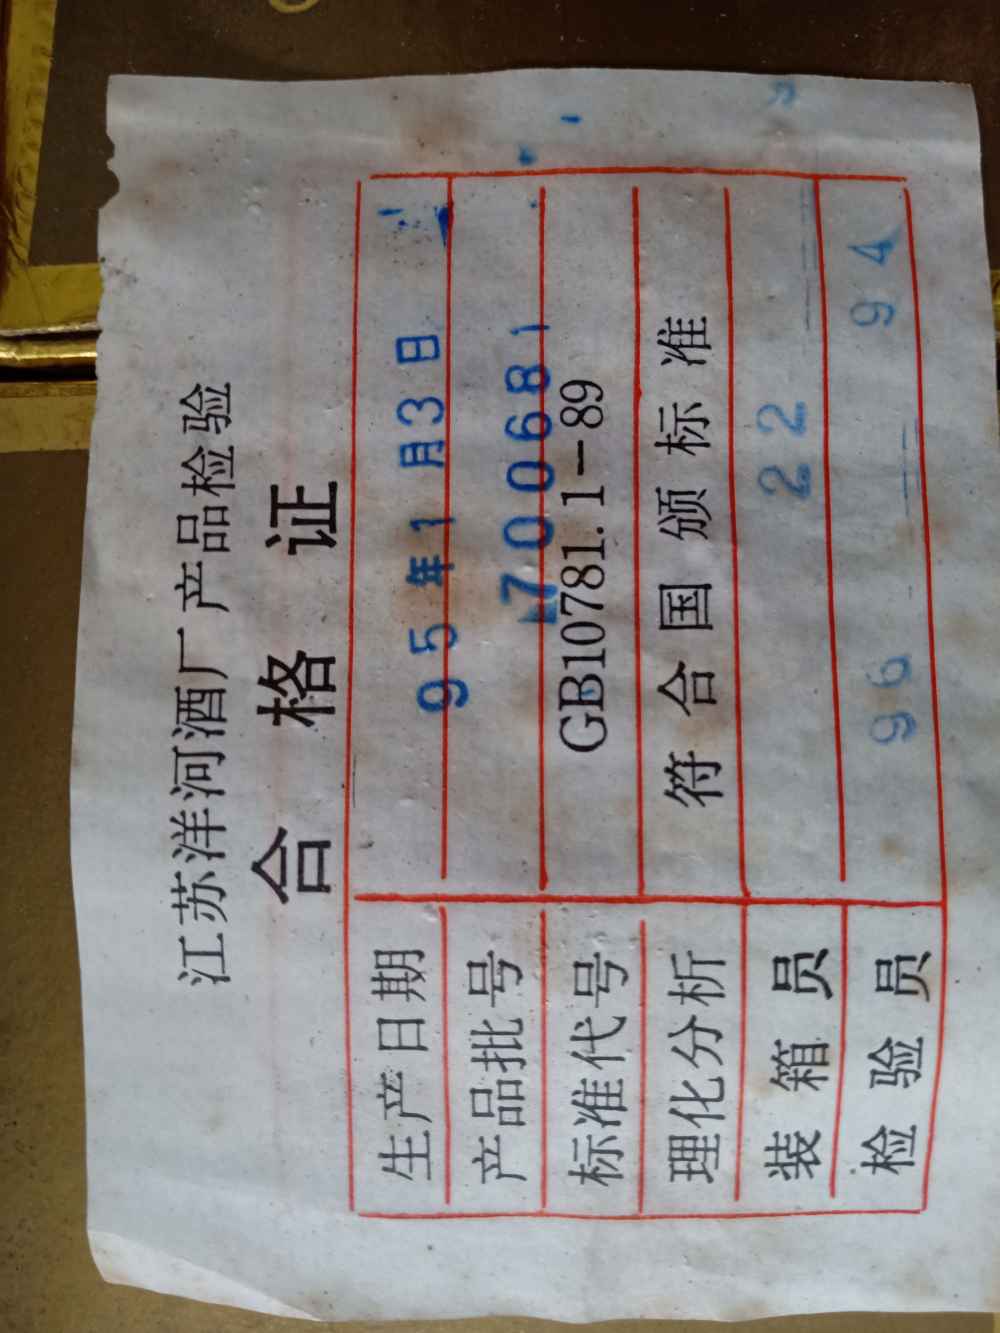 江苏洋河酒厂产品检验
合格证
生产日期 95年1月3日
产品批号 700681
标准代号 GB10781.1-89
理化分析 符合国颁标准
装箱员 22
检验员 96 94